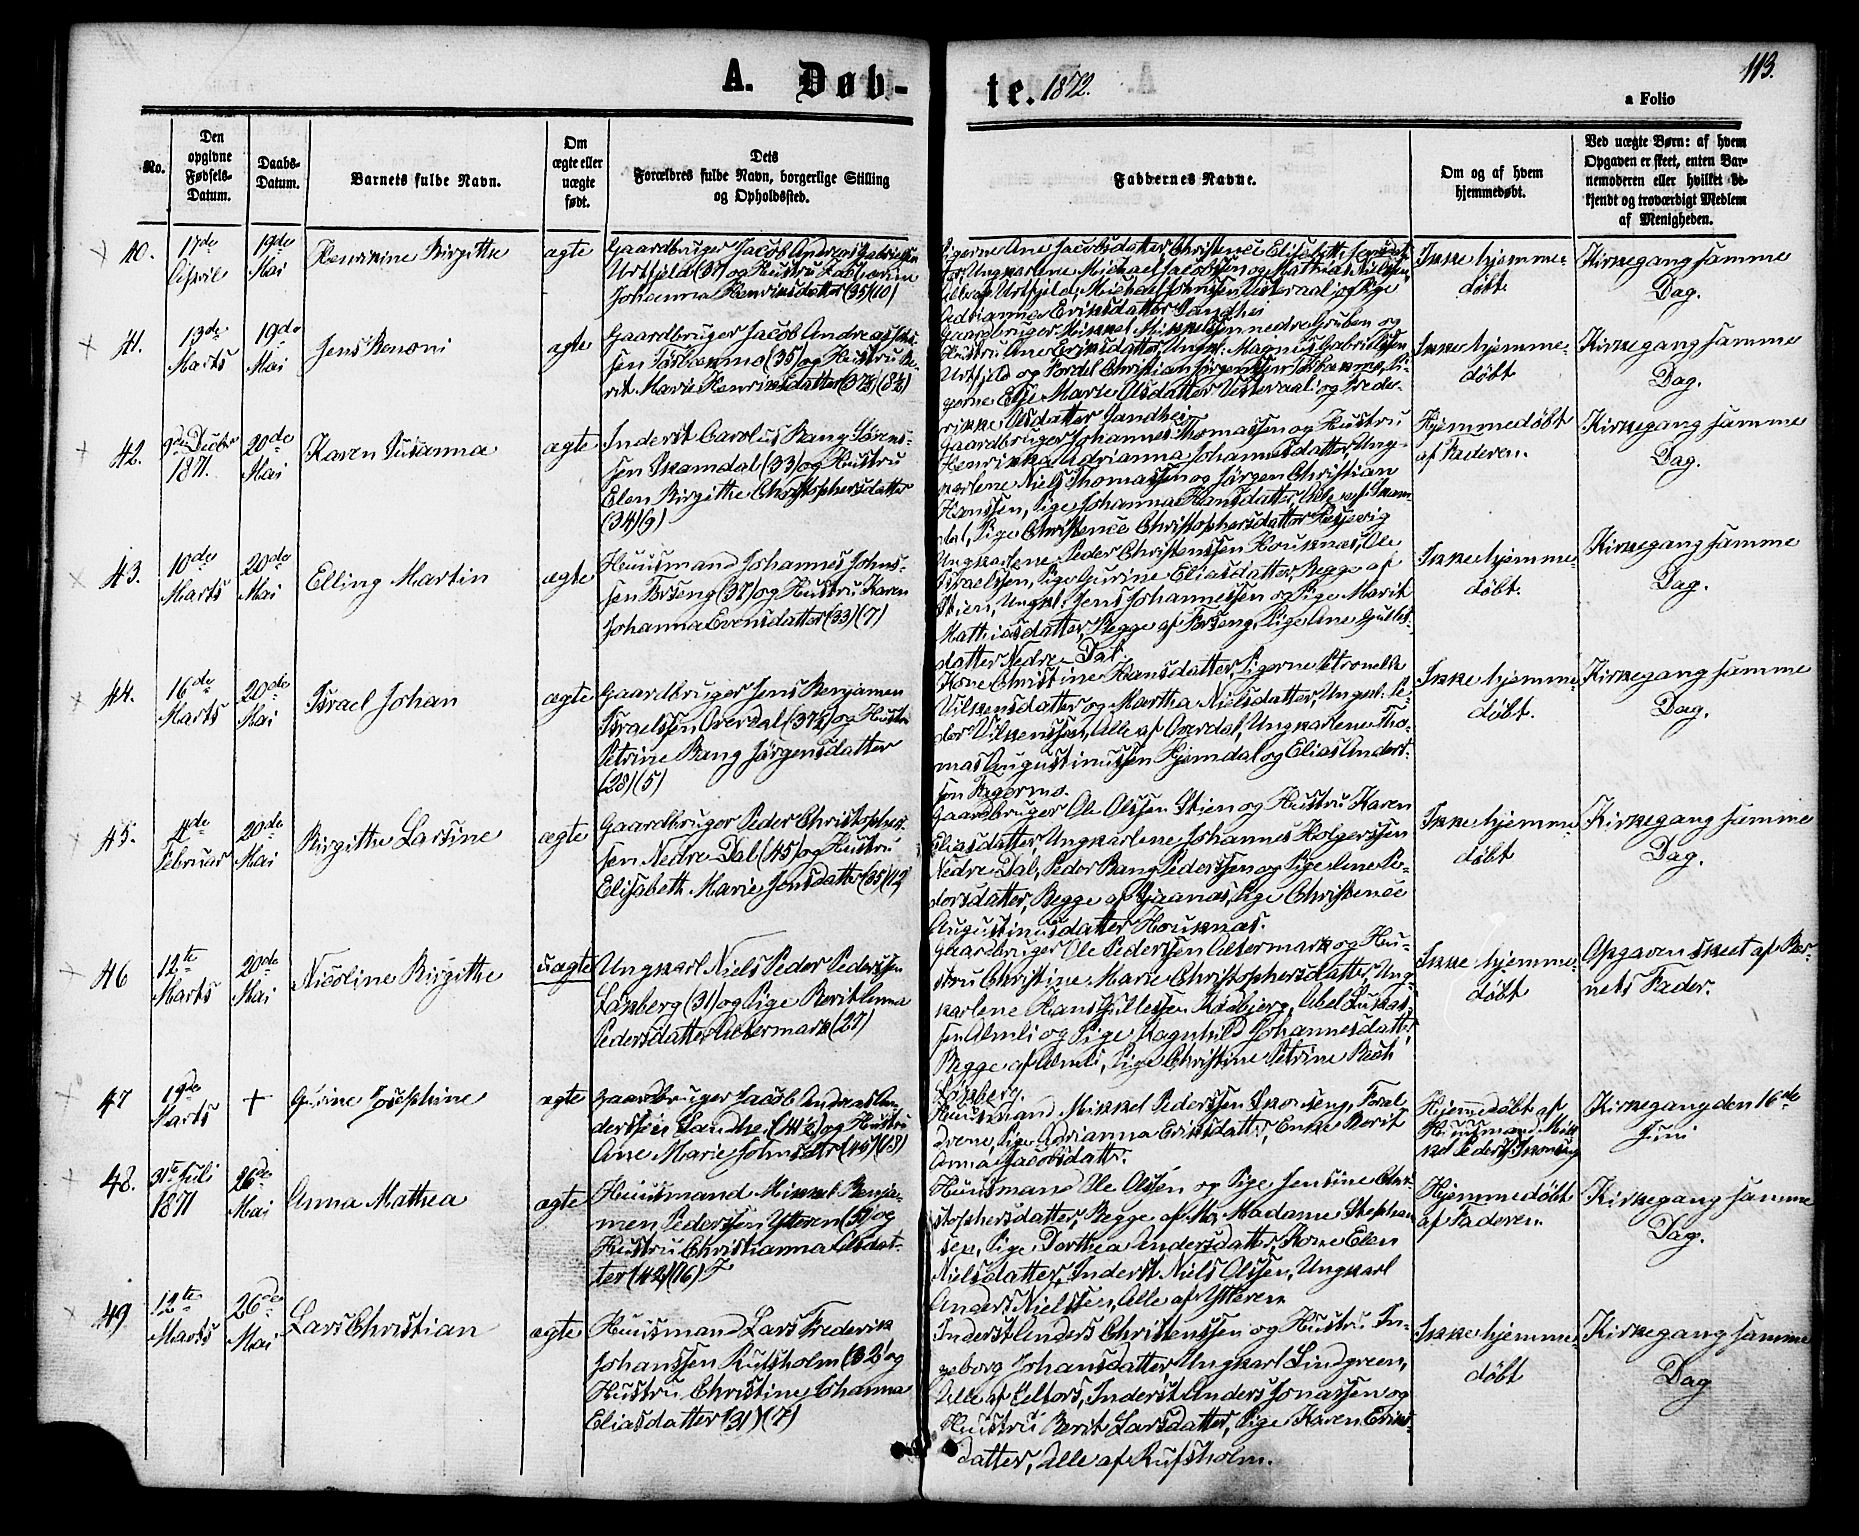 113.
A. Døb-
te. 1872.
a Folio
No.
Den opgivne Fødsels-Datum.
Daabs-Datum.
Barnets fulde Navn.
Om ægte eller uægte født.
Dets Forældres fulde Navn, borgerlige Stilling og Opholdssted.
Faddernes Navne.
Om og af hvem hjemmedøbt.
Ved uægte Børn: af hvem Opgaven er skeet, enten Barnemoderen eller hvilket bekjendt og troværdigt Medlem af Menigheden.
40.
17de April
19de Mai
Henrikine Birgithe
ægte
Gaardbruger Jacob Andreas Gabrielsen
Urtfjeld (37) og Hustru
Johanna Henriksdatter (35) (10)
Pigerne Ane Jacobsdatter, Christence Elisabeth
Ungkarlene Michael Jacobssen og Mathias Nielssen
Alle af Urtfjeld, og Pige
Adrianna Eriksdatter Sandhei
Ikke hjemme-
døbt.
Kirkegang samme
Dag.
41.
13de Marts
19de Mai
Jens Benoni
ægte
Gaardbruger Jacob Andreas
sen (35) og Hustru Be-
rit Marie Henriksdatter (37½) (8½)
Gaardbruger Mikkel Mikkelssen nedre Gruben og
Hustru Ane Eriksdatter, Ungk. Magnus Gabrielssen
Urtfjeld og Christian Pi-
gerne Else Marie Olsdatter Vesteraali og Frede-
rikke Olsdatter Sandhei
Ikke hjemme-
døbt.
Kirkegang samme
Dag.
42.
9de Decbr 1871.
20de Mai
Karen Susanna
ægte
Inderst Carolus Bang Sørens-
sen Skamdal (33) og Hustru
Elen Birgithe Christophersdatter
(34) (9)
Gaardbruger Johannes Thomassen og Hustru
Henrikka Adrianna Johannesdatter, Ung-
karlene Niels Thomassen og Jørgen Christian
Hanssen, Pige Johanna Hansdatter, Alle af Skam-
dal, Pige Christence Christophersdatter
Hjemmedøbt
af Faderen.
Kirkegang samme
Dag.
43.
10de Marts
20de Mai
Elling Martin
ægte
Huusmand Johannes Johns-
sen Forseng (37) og Hustru Karen
Johanna Evensdatter (33) (7)
Ungkarlene Peder Christenssen Houknæs, Ole
Israelssen, Pige Gurine Eliasdatter, Begge af
Stien, Ungkl. Jens Johannessen og Pige Marit
Mathiasdatter, Begge af Forseng, Pige Ane Gulles-
datter Nedre Dal.
Ikke hjemme-
døbt.
Kirkegang samme
Dag.
44.
16de Marts
20de Mai
Israel Johan
ægte
Gaardbruger Jens Benjamen
Israelssen Overdal (37½) og Hustru
Petrine Bang Jørgensdatter
(28) (5)
Kone Christine Hansdatter, Pigerne Petronelle
Vilkensdatter og Martha Nielsdatter, Ungkl. Pe-
der Vilkenssen, Alle af Overdal, Ungkarlene Tho-
mas Augustinussen Hjemdal og Elias Anders-
sen
Ikke hjemme-
døbt.
Kirkegang samme
Dag.
45.
4de Februar
20de Mai
Birgithe Larsine
ægte
Gaardbruger Peder Christopher-
sen Nedre Dal (45) og Hustru
Elisabeth Marie Jonsdatter (35) (12)
Gaardbruger Ole Olssen Stien og Hustru Karen
Eliasdatter, Ungkarlene Johannes Holgerssen
Nedre Dal, Peder Bang Pederssen og Pige Lene Pe-
dersdatter, Begge af Pige Christence
Augustinusdatter Houknæs.
Ikke hjemme
døbt
Kirkegang samme
Dag.
46
12te Marts
20de Mai
Nicoline Birgithe
uægte
Ungkarl Niels Peder Pederssen
Laxberg (31) og Pige Berit Anna
Pedersdatter Aakermark (27)
Gaardbruger Ole Pederssen Aakermark og Hu-
stru Christine Marie Christophersdatter, Ung-
karlene Hans Gullessen Abel Lukas-
sen Almli og Pige Magnhild Johannesdatt.
Begge af Almli, Pige Christine Petrine Bech
Laxberg.
Ikke hjemme-
døbt
Opgaven skeet af Bar-
nets Fader.
47
19de Marts
+
Gurine Josephine
ægte
Gaardbruger Jacob Andreas An-
derssen Sandhei (41½) og Hustru
Ane Marie Johnsdatr (45) (63)
Huusmand Mikkel Pederssen Skonseng, Foræl-
drene, Pige Adrianna Eriksdatr, Enke Berit
Anna Jacobsdatr.
Hjemmedøbt af
Huusmand Mik-
kel Peders. Skonseng
Kirkegang den 16de
Juni
48.
31te Juli 1871
26de Mai
Anna Mathea
ægte
Huusmand Mikkel Benja-
men Pederssen Ytteren (37) og
Hustru Christianna Olsdat-
ter (42) (16)
Huusmand Ole Olssen og Pige Jensine Chri-
stophersdatter, Begge af Mo, Madame Stephan-
sen, Pige Dorthea Andersdatter, Kone Elen
Nielsdatter, Inderst Niels Olssen, Ungkarl
Anders Nielssen, Alle af Ytteren
Hjemmedøbt
af Faderen.
Kirkegang samme
Dag.
49
12te Marts
26de Mai
Lars Christian
ægte
Huusmand Lars Frederik
Johanssen Rufsholm (32) og
Hustru Christine Johanna
Eliasdatter (31) (7)
Inderst Anders Christenssen og Hustru In-
geborg Johansdatter, Ungkarl Lindgreen,
Alle af Selfors, Inderst Anders Jonassen og
Hustru Berit Larsdatter, Pige Karen Eriks-
datter, Alle af Rufsholm.
Ikke hjemme
døbt
Kirkegang samme
Dag